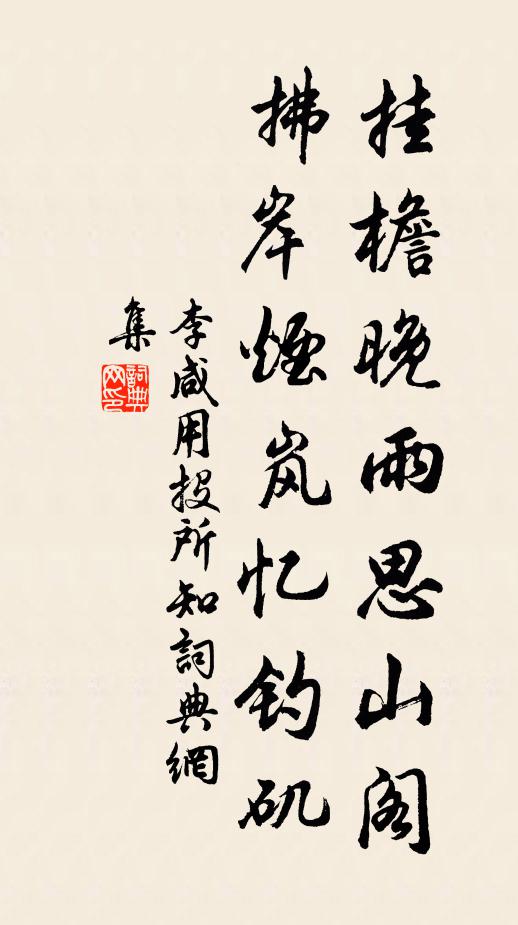 挂檐晚雨思山阁
拂岸煙岚忆钓矶
李咸用投所知詞典網
集
詞典
网印